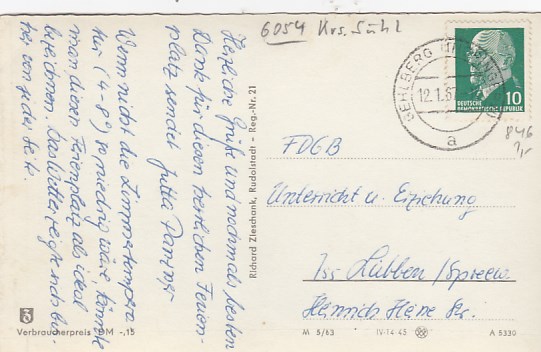 6054 Krs. Suhl
Herzliche Grüße und nochmals besten
Dank für diesen herrlichen Ferien-
platz sendet Jutta
Wenn nicht die Zimmertempera
tur (4-8°) so niedrig wäre, könnte
man diesen Ferienplatz als ideal
bezeichnen. Das Wetter zeigt sich bis-
her von jeder Seite.
Richard Zieschank, Rudolstadt - Reg.-Nr. 21
GEHLBERG (THÜRINGEN)
12.1.67
a
DEUTSCHE
DEMOKRATISCHE REPUBLIK
10
846
FDGB
Unterricht u. Erziehung
Lübben/Spreew.
Heinrich Heine Str.
Verbraucherpreis DM -,15
M 5/63
IV-14-45
A 5330